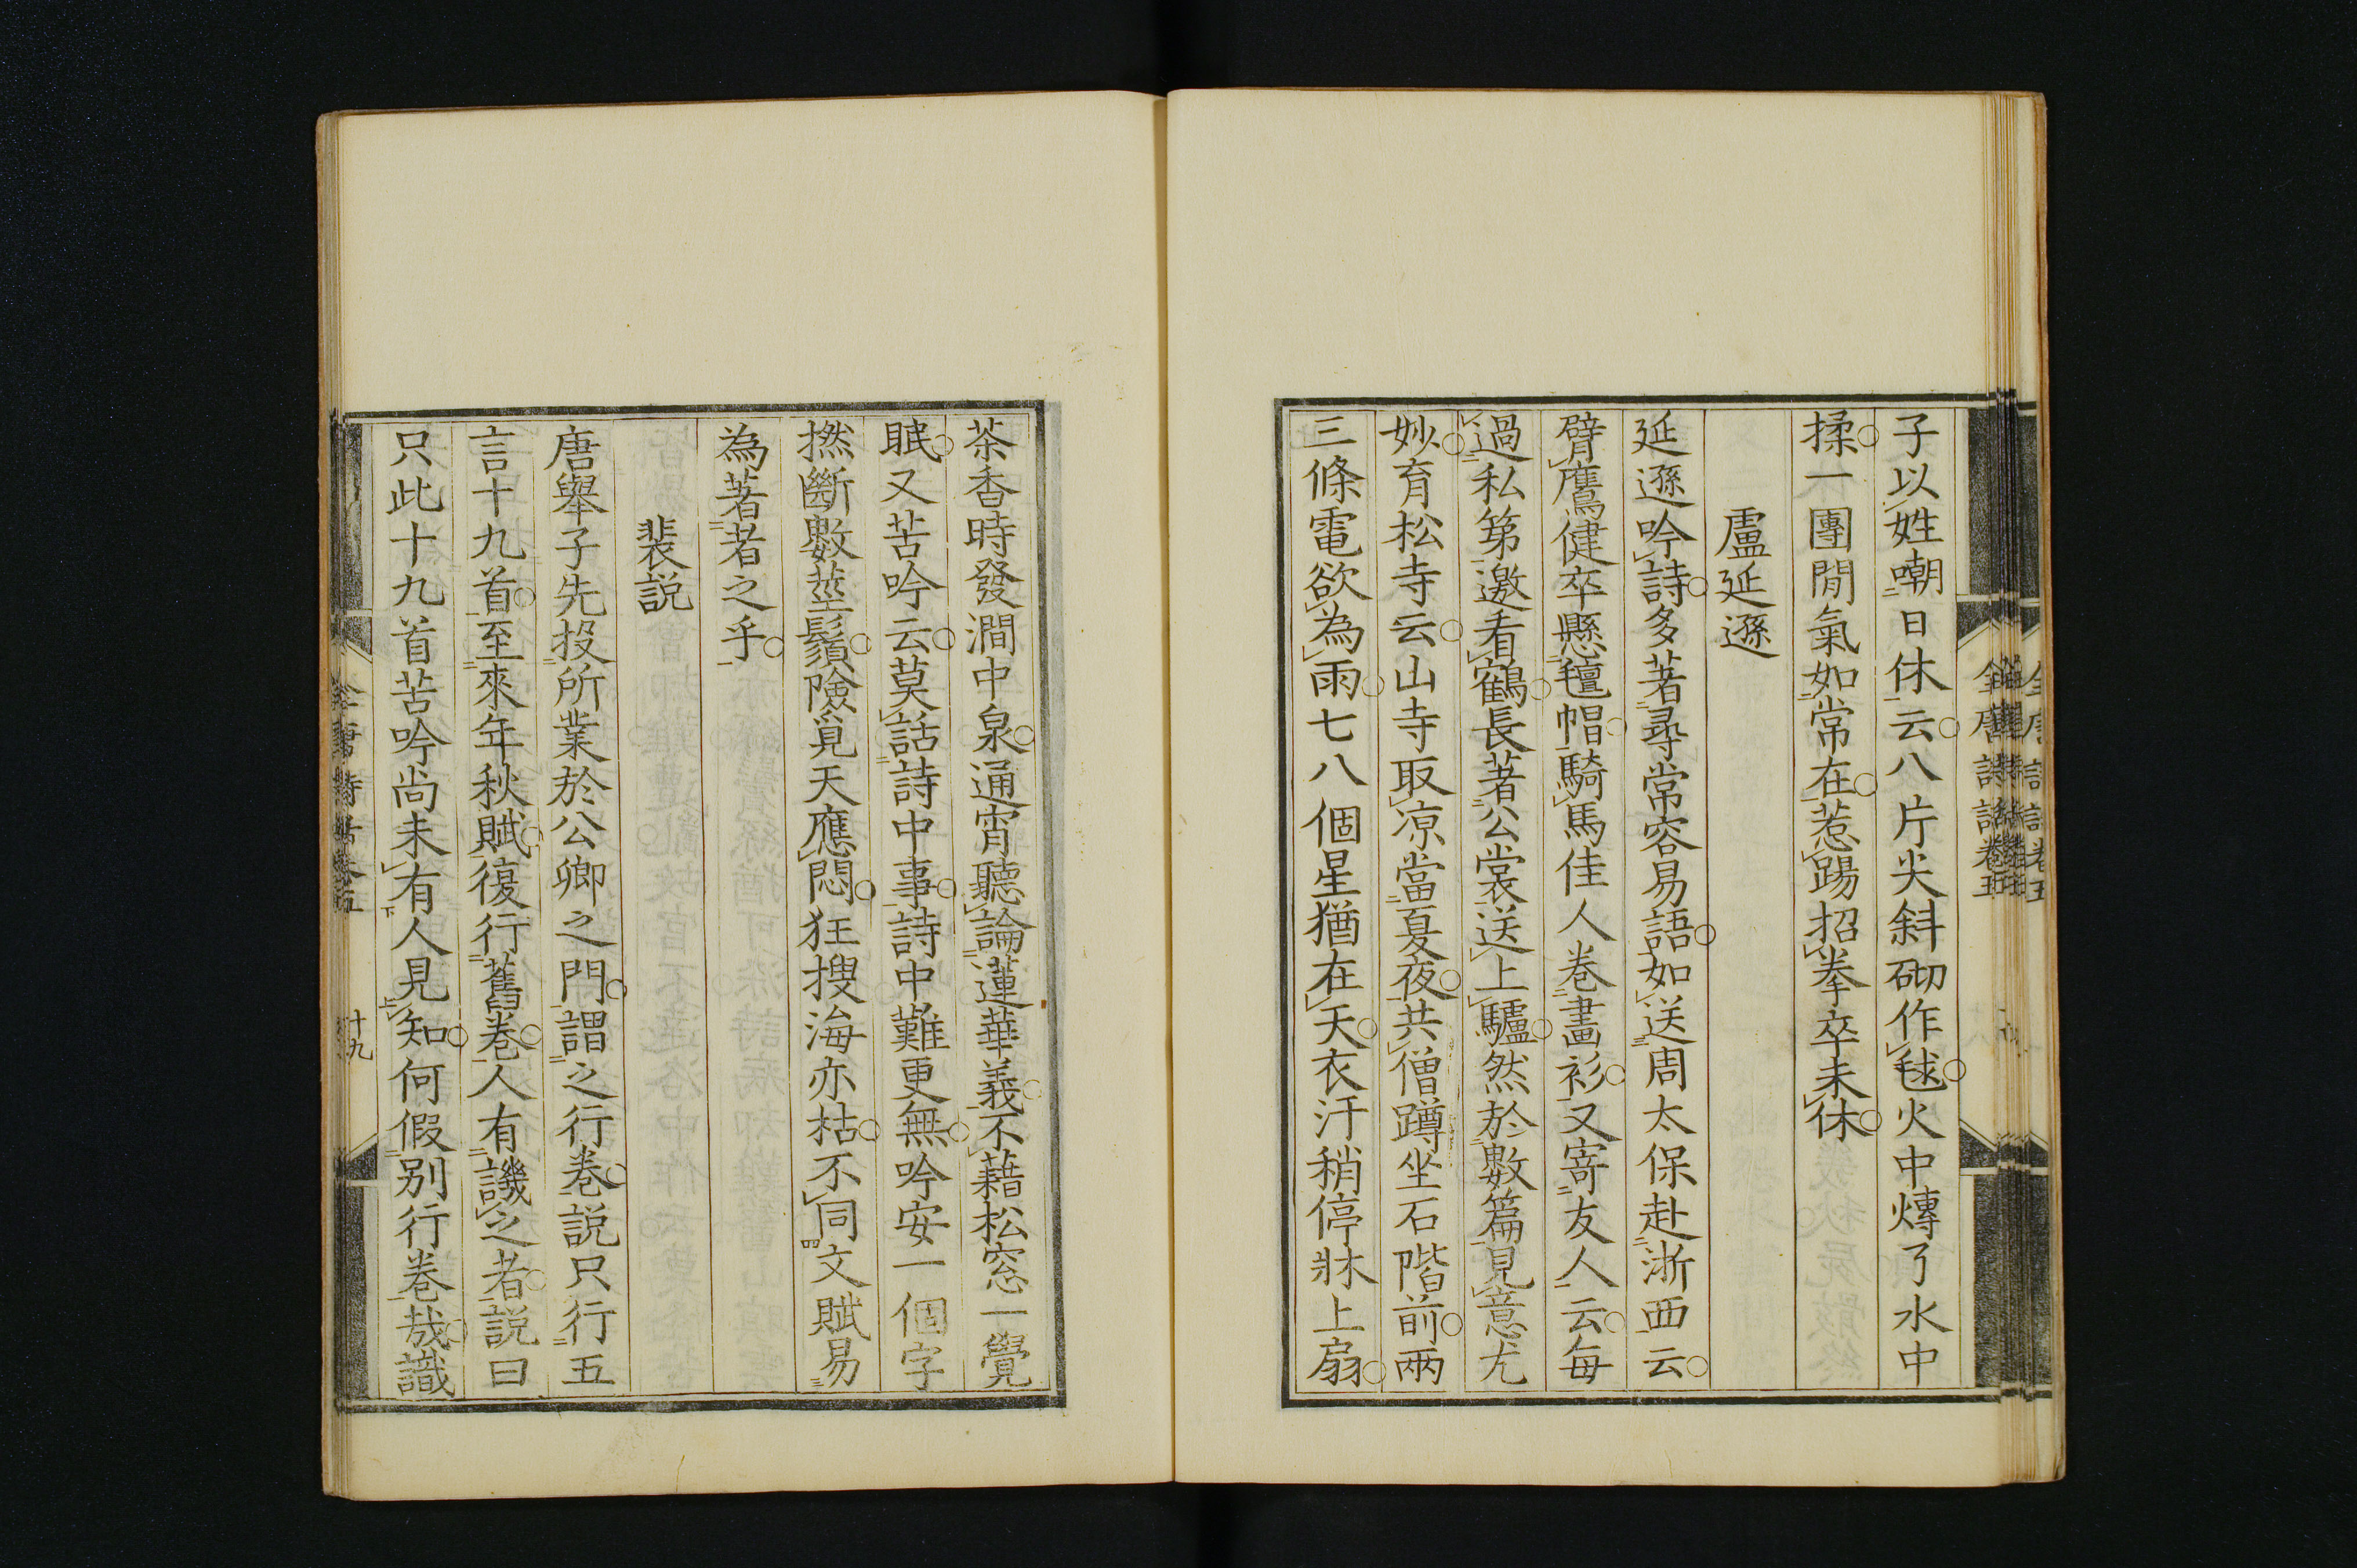 子以姓嘲日休云八片尖斜砌作毬火中燖了水中
揉一團閒氣如常在惹踢招拳卒未休
盧延遜
延遜吟詩多著尋常容易語如送周太保赴浙西云
臂鷹健卒懸氊帽騎馬佳人卷畫衫又寄友人云每
過私第邀看鶴長著公裳送上驢然於數篇見意尤
妙育松寺云山寺取凉當夏夜共僧蹲坐石階前兩
三條電欲為雨七八個星猶在天衣汗稍停牀上扇
茶香時發澗中泉通宵聽論蓮華義不藉松窓一覺
眠又苦吟云莫話詩中事詩中難更無吟安一個字
撚斷數莖鬚險覓天應悶狂搜海亦枯不同文賦易
為著者之乎
裴説
唐舉子先投所業於公卿之門謂之行卷説只行五
言十九首至來年秋賦復行舊卷人有譏之者説曰
只此十九首苦吟尚未有人見知何假别行卷哉識
全唐詩話卷五
十九